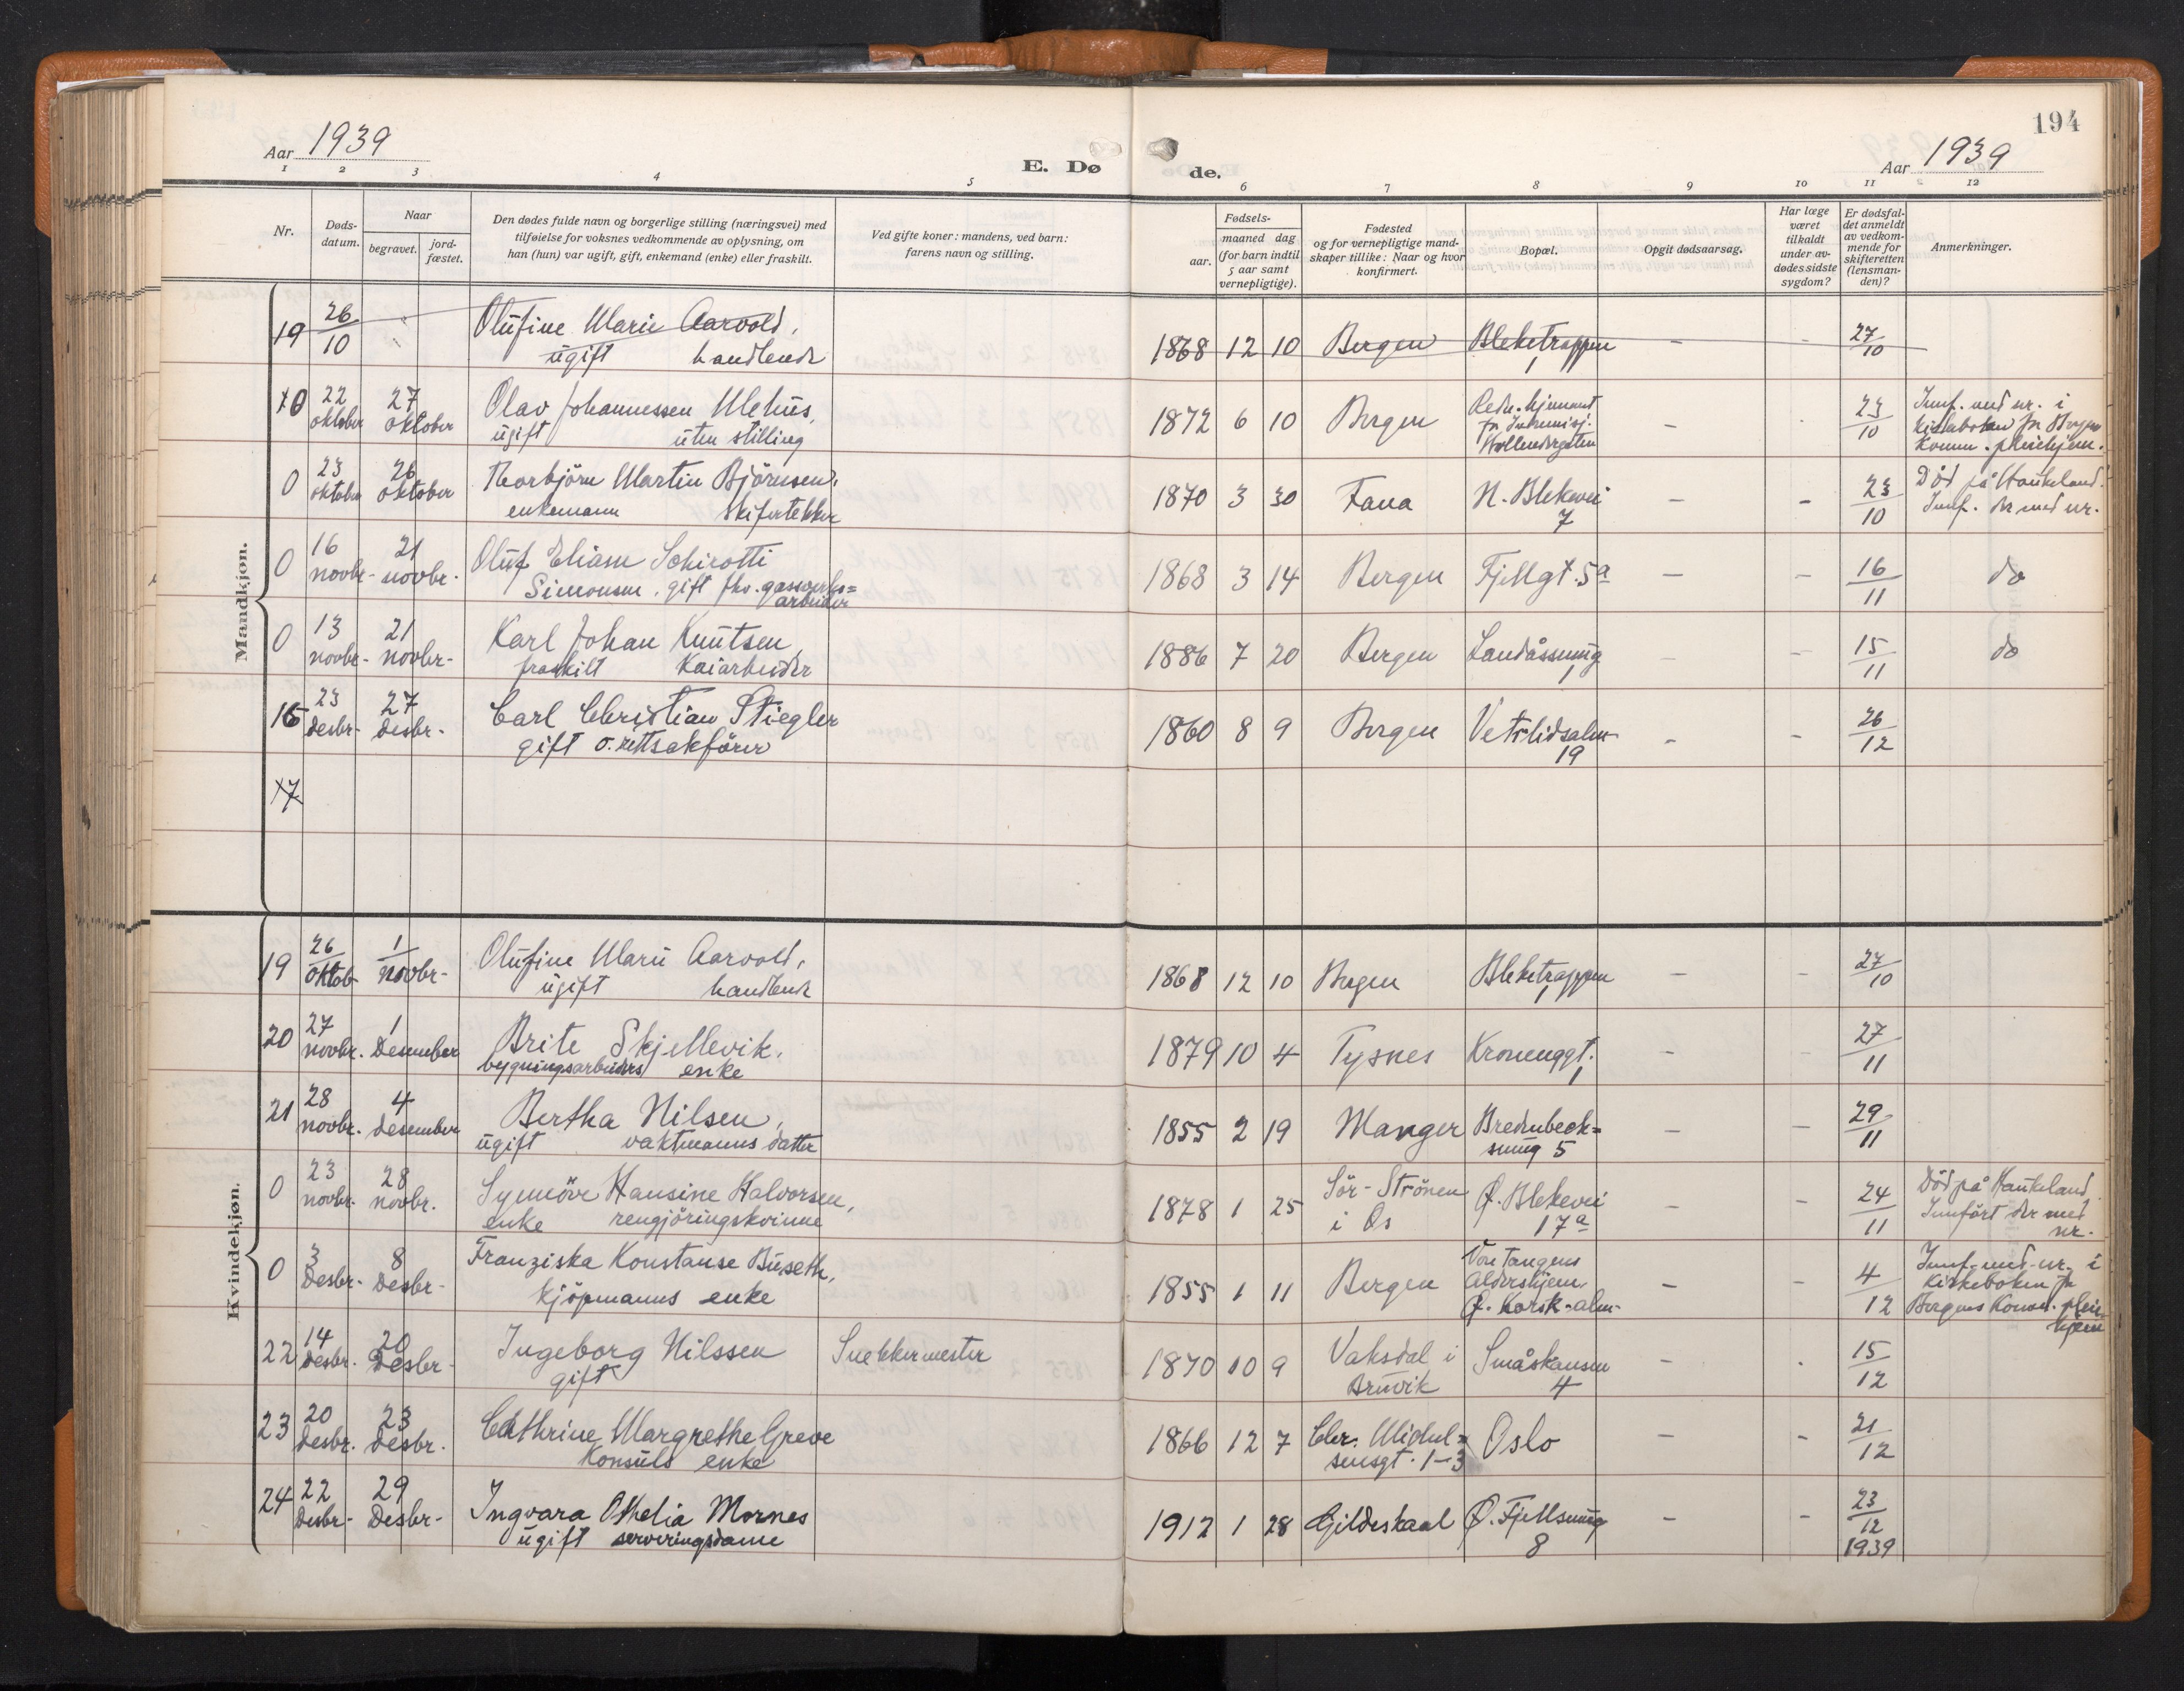 194
Aar 1939
E. Dø
de.
Aar 1939
1 2 3 4 5 6 7 8 9 10 11 12
Nr.
Døds-
datum.
Naar
begravet.
jord-
fæstet.
Den dødes fulde navn og borgerlige stilling (næringsvei) med
tilføielse for voksnes vedkommende av oplysning, om
han (hun) var ugift, gift, enkemand (enke) eller fraskilt.
Ved gifte koner: mandens, ved barn:
farens navn og stilling.
Fødsels-
aar.
maaned dag
(for barn indtil
5 aar samt
vernepligtige).
Fødested
og for vernepligtige mand-
skaper tillike: Naar og hvor
konfirmert.
Bopæl.
Opgit dødsaarsag.
Har læge
været
tilkaldt
under av-
dødes sidste
sygdom?
Er dødsfal-
det anmeldt
av vedkom-
mende for
skifteretten
(lensman-
den)?
Anmerkninger.
Mandkjøn.
19 26/10 Olufine Marie Aarvold, 1868 12 10 Bergen Bleketrappen - - 27/10
ugift handlende 1
0 22 27 Olav Johannessen Mehus, 1872 6 10 Bergen - 23/10 Innf. med nr. i
oktober oktober ugift uten stilling kirkeboken for Bergen
Hollendergaten Komm. pleiehjem.
0 23 26 Thorbjörn Martin Björnsen, 1870 3 30 Fana N. Blekevei - - 23/10 Död på Haukeland.
oktober oktober enkemann skifertekker 7 Innf. der med nr.
0 16 21 Oluf Eliasn Schirotti 1868 3 14 Bergen Fjellgt. 5a - - 16/11 do
novbr- novbr. Simonsen, gift fhv. gassverks=
arbeider
0 13 21 Karl Johan Knutsen 1886 7 20 Bergen Landåssmug - - 15/11 do
novbr- novbr- fraskilt Kaiarbeider 1
16 23 27 Carl Christian Stiegler 1860 8 9 Bergen Vetrlidsalm- - - 26/12
desbr- desbr- gift o.rettsakförer 19
17
Kvindekjøn.
19 26 1 Olufine Marie Aarvold, 1868 12 10 Bergen Bleketrappen - - 27/10
oktob- novbr- ugift handlende 1
20 27 1 Brite Skjellevik, 1879 10 4 Tysnes Kronenggt. - - 27/11
novbr. Desember bygningsarbeiders enke 1
21 28 4 Bertha Nilsen, 1855 2 19 Manger Bredenbeck= - - 29/11
novbr. desember ugift vaktmanns datter smug 5
0 23 28 Synnöve Hansine Halvorsen, 1878 1 25 Sör-Strönen Ø. Blekevei - - 24/11 Död på Haukeland
novbr- novbr. enke rengjöringskvinne i Os 17a Innfört der med
nr.
0 3 8 Franziska Konstanse Buseth, 1855 1 11 Bergen Von Tangens - - 4/12 Innf. med nr. i
Desbr- Desbr- kjöpmanns enke Aldershjem Kirkeboken for
Ø. Korsk-alm- Bergens Komm. pleie
hjem
22 14 20 Ingeborg Nilssen Snekkermester 1870 10 9 Vaksdal i Småskansen - - 15/12
desbr. Desbr- gift Bruvik 4
23 20 23 Cathrine Margrethe Greve 1866 12 7 Chr. Michel= Oslo - - 21/12
desbr. desbr. Konsuls enke sensgt. 1-3
24 22 29 Ingvara Othelia Mornes 1912 1 28 Gildeskaal Ø. Fjellsmug - - 23/12
Desbr- Desbr- ugift serveringsdame 8 1939